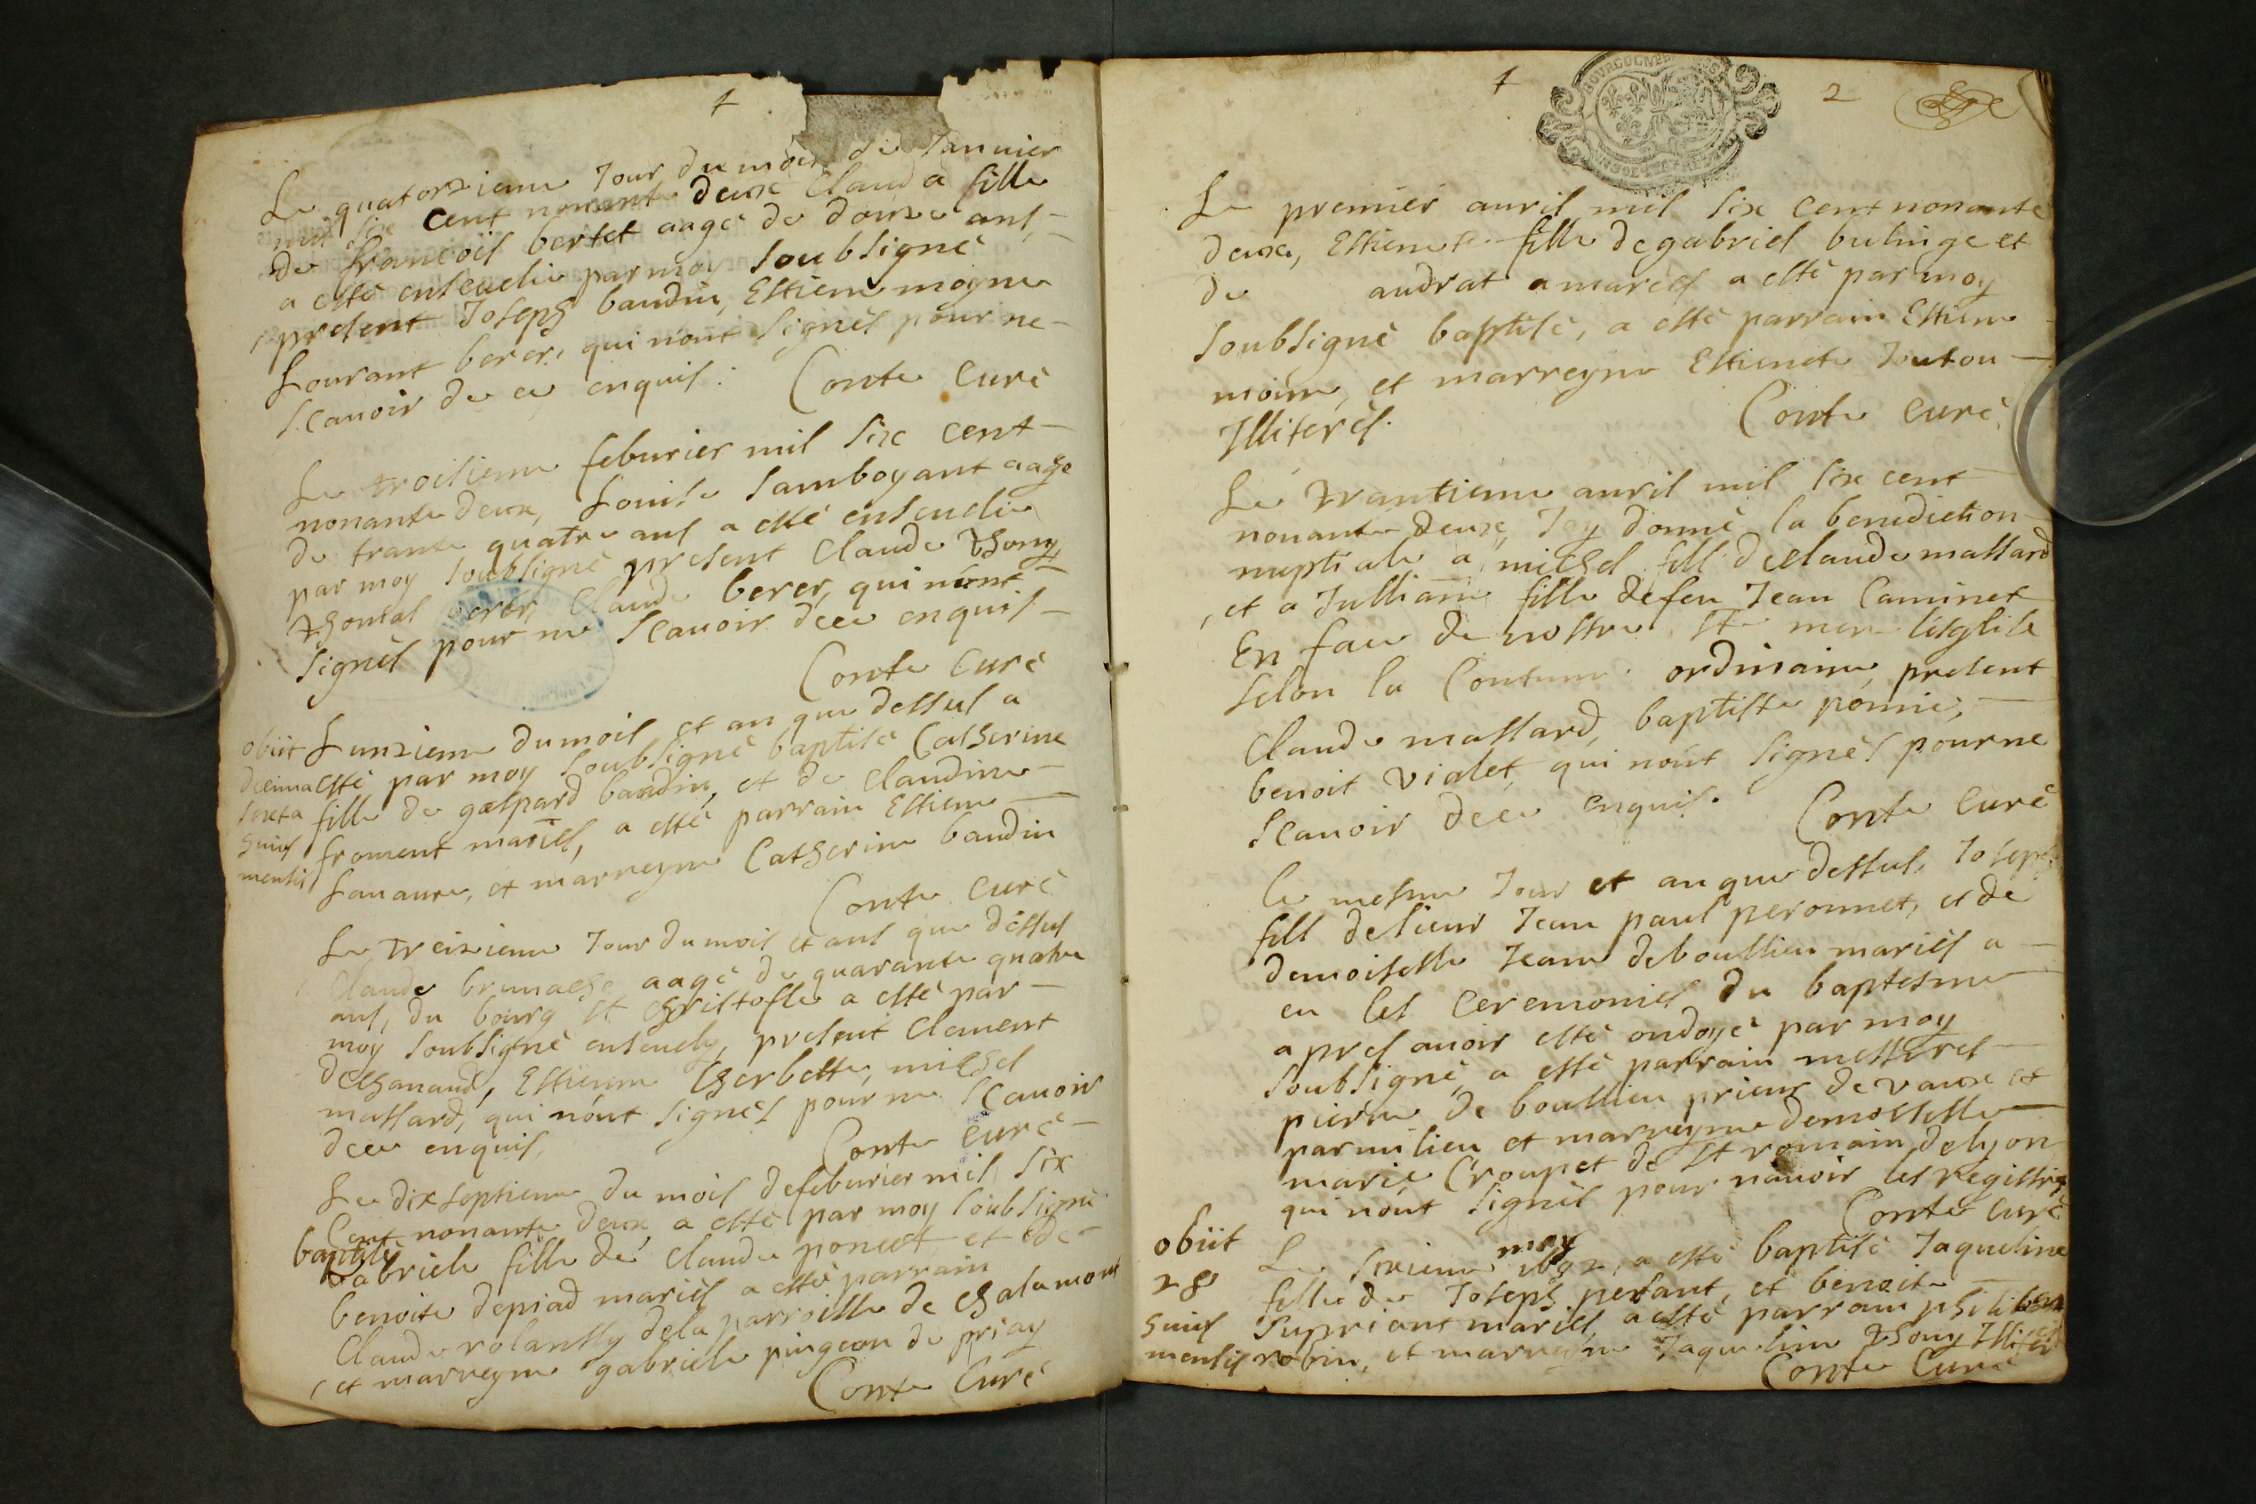 Le quatorzieme Jour du mois de Januier
mil six cent nonante deux Clauda fille
de francois bertet aagé de douze ans
a esté enseuelie par moy soubsigné
present Joseph baudin, Estiene moyne
Lourant berer, qui nont signés pour ne
scauoir de ce enquis. Conte Curé
Le troisieme feburier mil six cent
nonante deux, Louise Jamboyant aagé
de trante quatre ans a esté enseuelie
par moy soubsigné present Claude Thony
berer, Claude berer, qui nont
signés pour ne scauoir dece enquis
Conte Curé
obiit
decima
sexta
huius
mensis
Lunzieme du mois et an que dessus a
esté par moy soubsigné baptisé Catherine
fille de gaspard baudin, et de Claudine
froment mariés, a esté parrain Estiene
Lanaure, et marreyne Catherine baudin
Conte Curé
Le treizieme Jour du mois et ans que dessus
Claude brunache aagé de quarante quatre
ans, du bourg st Christofle a esté par
moy soubsigné enseuely, present Clement
dechanaud, Estiene Gherbette, michel
massard, qui nont signés pour ne scauoir
dece enquis, Conte Curé
Le dix septieme du mois de feburier mil six
Cent nonante deux a esté par moy soubsigné
baptisé
gabriele fille de Claude poncet et de
benoite depiad mariés a esté parrain
Claude rolantly dela parroisse de chalamont
et marreyne gabriele pingeon de priay
Conte Curé
2
Le premier auril mil six cent nonante
deux, Estienete fille de gabriel bulinge et
de audrat a mariés a esté par moy
soubsigné baptisé, a esté parrain Estiene
moine, et marreyne Estienete Joutou
Illiterés. Conte Curé
Le trantieme auril mil six cent
nonante deux, Jay donné la benediction
nuptiale a michel fils de Claude massard
et a Julliane fille de feu Jean Caminet
En face de nostre ste mere lesglise
selon la Coutume ordinaire, present
Claude massard, baptiste ponne,
benoit violet, qui nont signés pour ne
scauoir dece enquis. Conte Curé
le mesme Jour et an que dessus, Joseph
fils de sieur Jean paul peronnet, et de
demoiselle Jeane deboullieu mariés a
eu les ceremonies du baptesme
apres auoir esté ondoyé par moy
soubsigné, a esté parrain messires
pierre de boullieu prieur de vaux et
parmilieu et marreyne demoiselle
marie Croupet de st romain de lyon
qui nont signés pour nauoir les registres
Conte Curé
obiit
28
huius
mensis
Le sixieme may 1692, a esté baptisé Jaqueline
fille de Joseph perant, et benoite
Supriant mariés, a esté parrain philibert
robin, et marreyne Jaqueline Thony Illiterés
Conte Curé